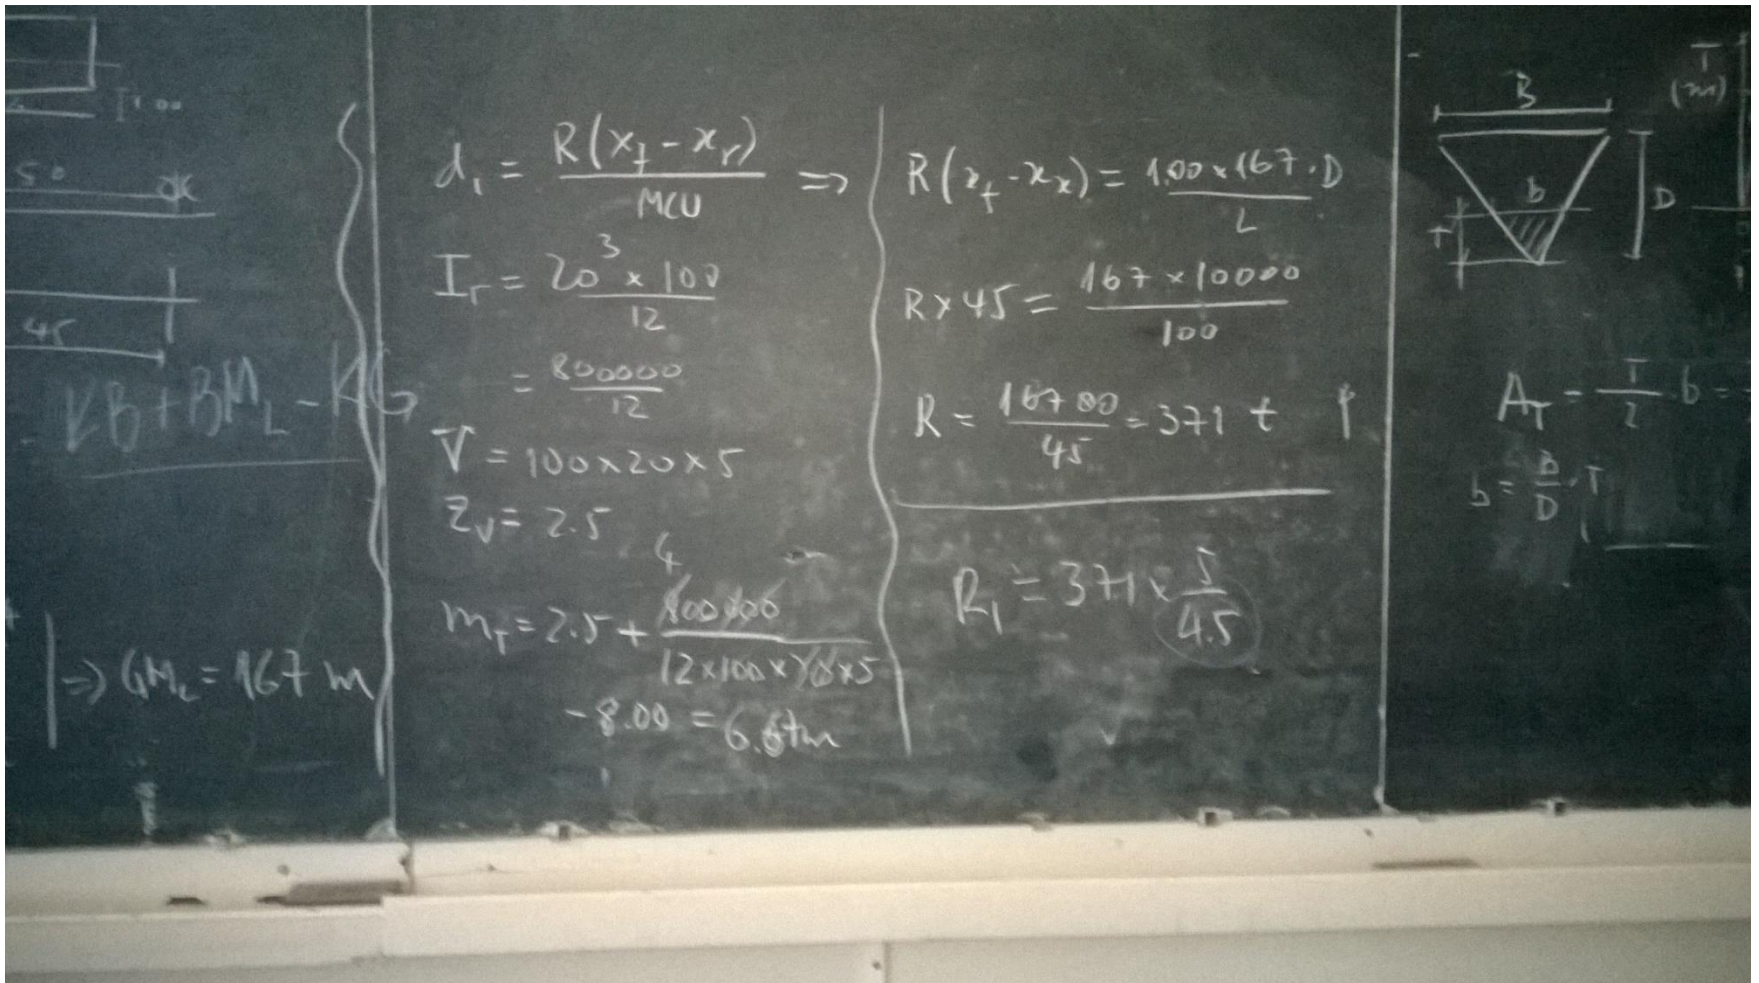 50
45
KB + BM_L - KG
=> GM_L = 167 m
d_1 = R(x_f - x_r) / MCU =>
I_r = 20^3 x 100 / 12
= 800000 / 12
V = 100x20x5
Z_v = 2.5
4
m_T = 2.5 + 800000 / 12x100x20x5
-8.00 = 6.67m
R(x_f - x_x) = 1.00 x 167 . D / L
R x 45 = 167 x 10000 / 100
R = 16700 / 45 = 371 t
R_1 = 371 x 5 / 4.5
B
b
D
T
T
(m)
A_T = T / 2 . b =
b = B / D . T